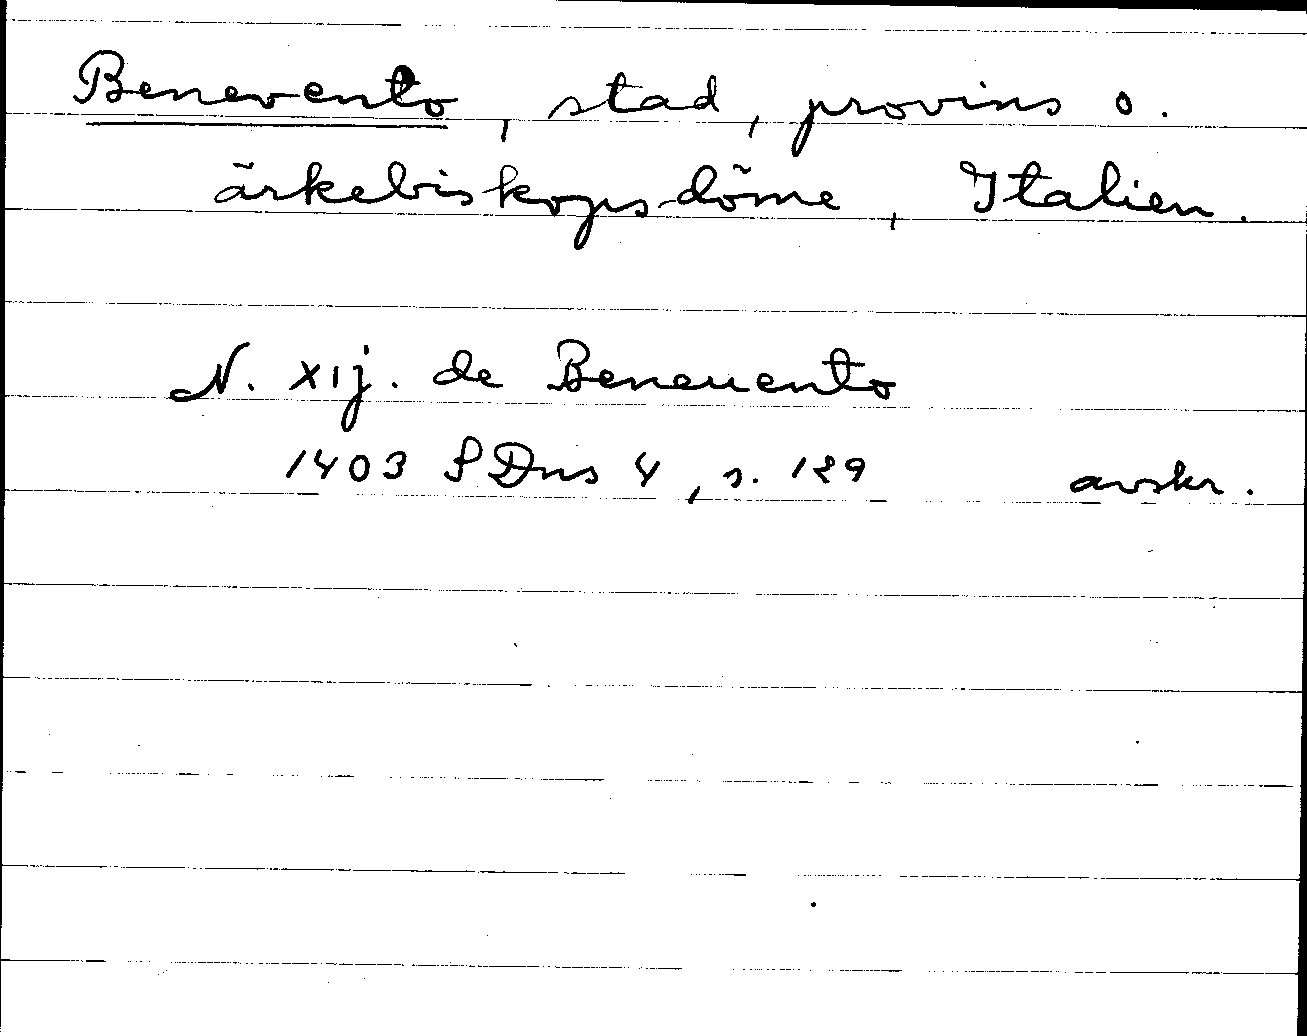 Benevento, stad, provins o.
ärkebiskopsdöme, Italien.
N. xij. de Beneuento
1403 SDns 4, s. 129 avskr.